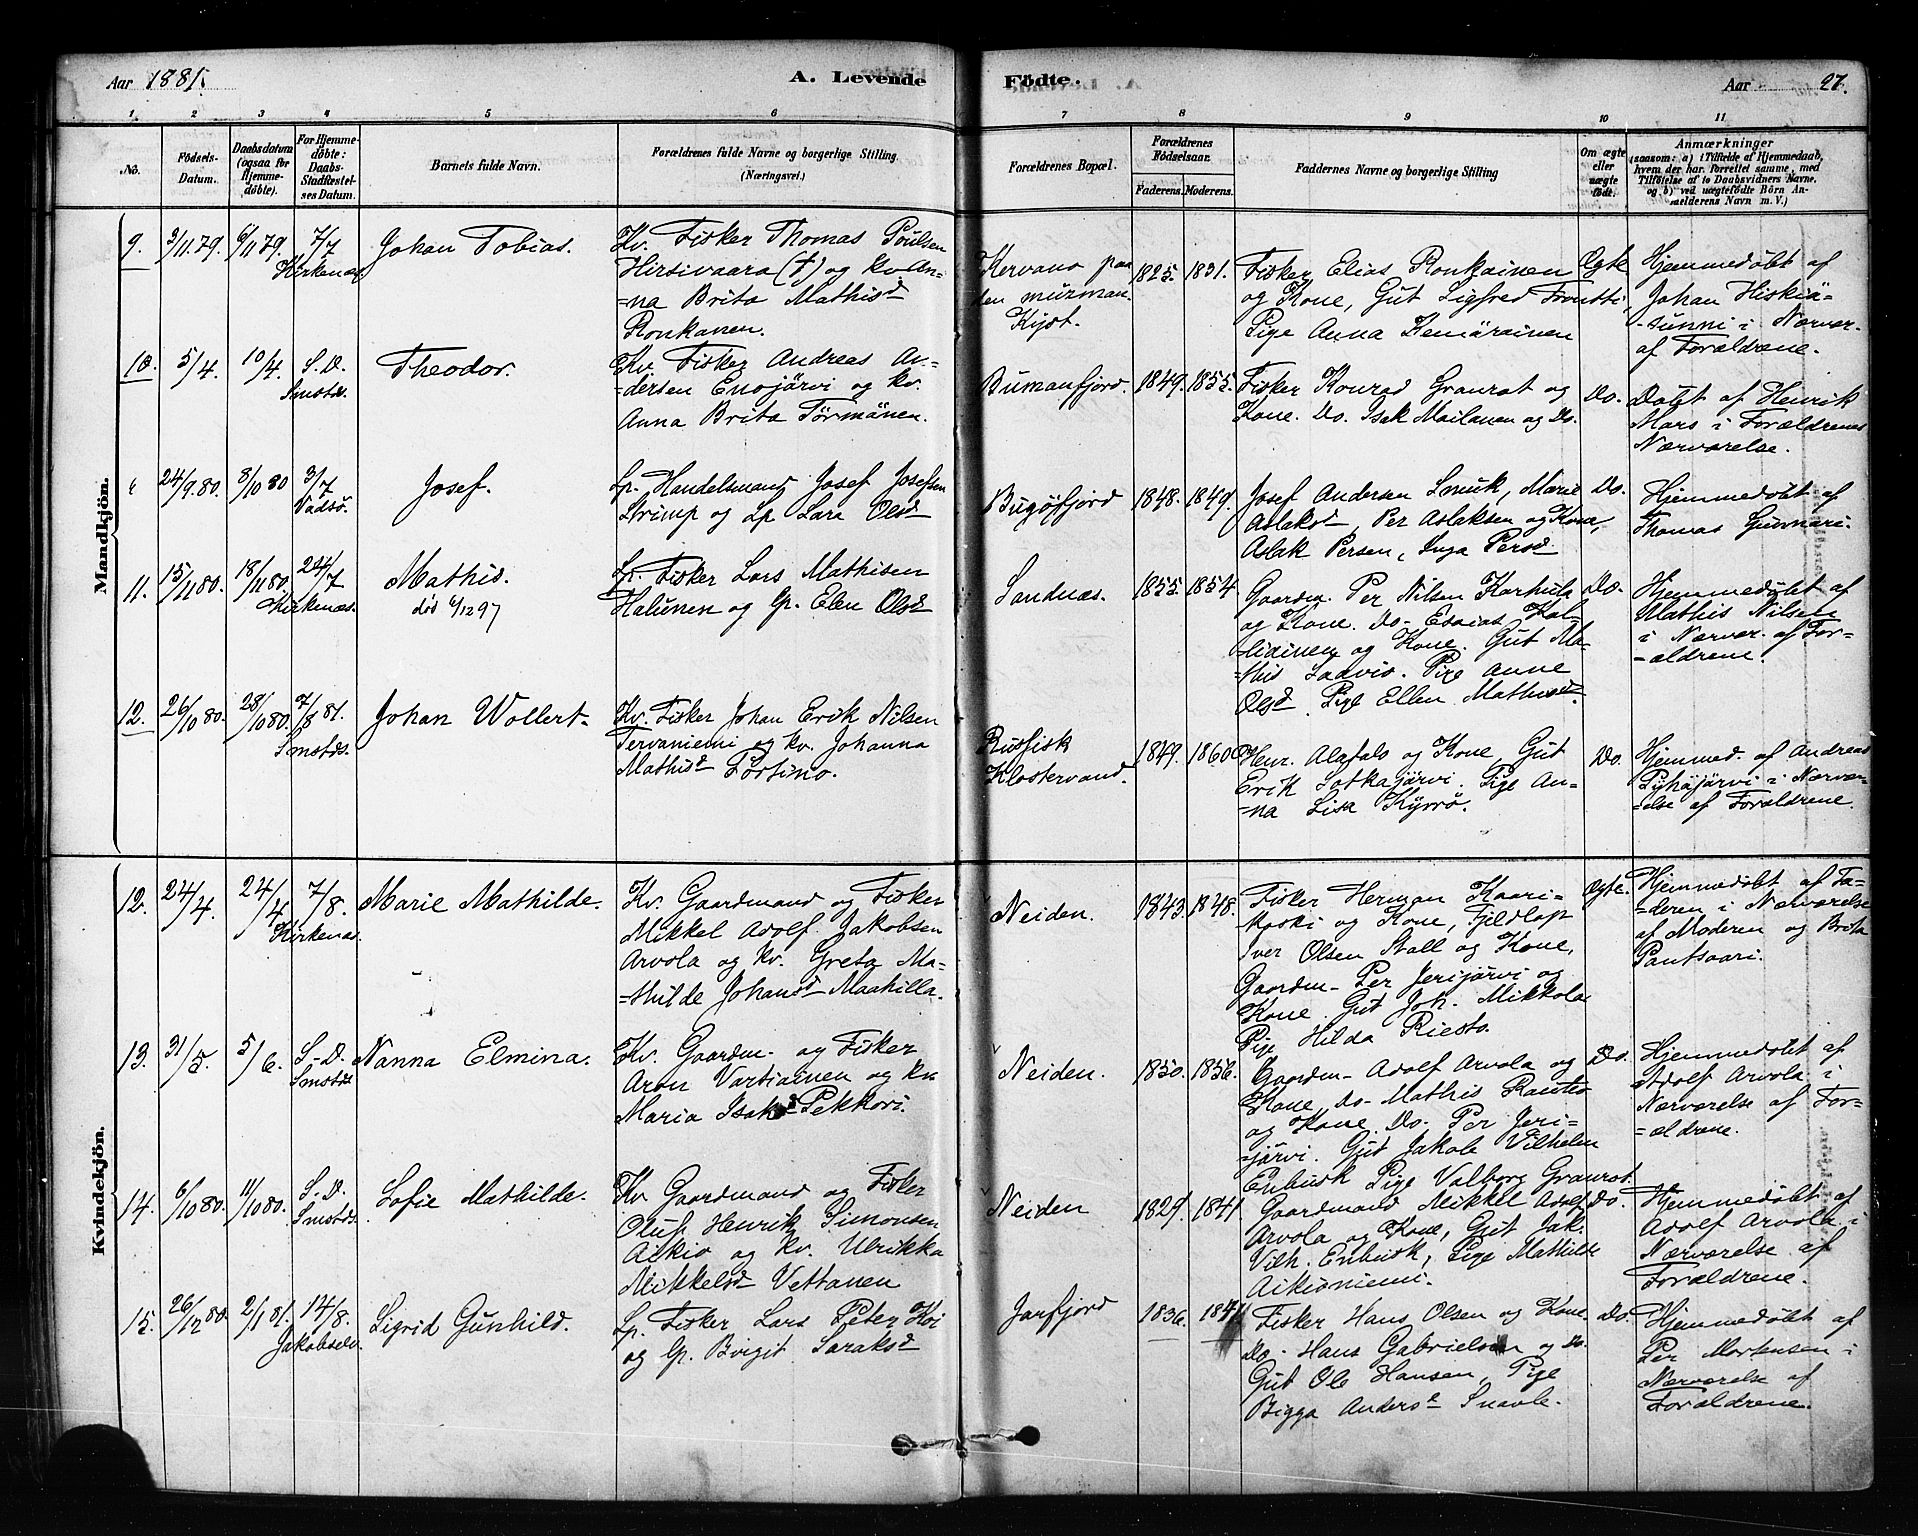 Aar 1881.
A. Levende
Födte.
Aar 27.
1 2 3 4 5 6 7 8 9 10 11
No.
Födsels-
Datum.
Daabsdatum
(ogsaa for
Hjemme-
döbte).
For Hjemme-
döbte:
Daabs-
Stadfæstel-
ses Datum.
Barnets fulde Navn.
Forældrenes fulde Navne og borgerlige Stilling
(Næringsvei.)
Forældrenes Bopæl.
Forældrenes
Födselsaar.
Faderens. Moderens.
Faddernes Navne og borgerlige Stilling
Om ægte
eller
uægte
födt.
Anmærkninger
(saasom: a) i Tilfelde af Hjemmedaab,
hvem der har forrettet samme, med
Tilföielse af to Daabsvidners Navne,
og b) ved uægtefödte Börn An-
melderens Navn m. V.)
Mandkjön.
9. 3/11.79. 6/11 79. 7/7
Kirkenæs.
Johan Tobias.
Kv. Fisker Thomas Poulsen
Hirsivaara (†) og kv. An-
=na Brita Mathisd
Ronkanen.
Kervano paa
den murman.
Kyst.
1825. 1831.
Fisker Elias Ronkainen
og Kone, Gut Sigfred Frontti,
Pige Anna Kemäräinen
Ægte.
Hjemmedøbt af
Johan Hiskiä-
-sunni i Nærvær.
af Forældrene.
10. 5/4. 10/4. S. D.
Smstds.
Theodor.
Kv. Fisker Andreas An-
=dersen Enojärvi og kv.
Anna Brita Törmänen.
Bumanfjord.
1849. 1855.
Fisker Konrad Granrot og
Kone. Do. Isak Mailanen og Do.
Do.
Døbt af Henrik
Mars i Forældrenes
Nærværelse.
24/9.80. 8/10 80 3/7
Vadsø.
Josef.
Lp. Handelsmand Josef Josefsen
Strimp og Lp Sara Olsd
Bugøfjord
1848. 1849.
Josef Andersen Smuk, Marie
Aslaksd, Per Aslaksen og Kone,
Aslak Persen, Inga Persd
Do.
Hjemmedøbt af
Thomas Gunnari.
11. 15/11 80. 18/11 80. 24/7
Kirkenæs.
Mathis.
død 6/12 97
Lp. Fisker Lars Mathisen
Halunen og Lp. Elen Olsd
Sandnæs.
1855. 1854.
Gaardm. Per Nilsen Karhula
og Kone. Do. Esaias Kal-
-liainen og Kone. Gut Ma-
=this Sadvio. Pige Anne
Olsd. Pige Ellen Mathisd.
Do.
Hjemmedøbt af
Mathis Nilsen
i Nærvær. af For-
=ældrene.
12. 26/10 80. 28/10 80. 7/8 81.
Smstds.
Johan Wollert.
Kv. Fisker Johan Erik Nilsen
Tervaniemi og kv. Johanna
Mathisd Portimo.
Russisk
Klostervand.
1849. 1860.
Henr. Alatalo og Kone, Gut
Erik Sotkajärvi. Pige An-
=na Lisa Kyrrö.
Do.
Hjemmed. af Andreas
Pyhäjärvi i Nærvæ-
-else af Forældrene.
Kvindekjön.
12. 24/4. 24/4 7/8.
Kirkenæs.
Marie Mathilde.
Kv. Gaardmand og Fisker
Mikkel Adolf Jakobsen
Arvola og kv. Greta Ma-
=thilde Johansd Maahilla.
Neiden.
1843. 1848.
Fisker Herman Kaari-
koski og Kone, Fjeldlap
Iver Olsen Stall og Kone,
Gaardm- Per Jerijärvi og
Kone. Gut Joh. Mikkola
Pige Hilda Riesto.
Ægte.
Hjemmedøbt af Fa-
=deren i Nærværelse
af Moderen og Brita
Pantsaari.
13. 31/5. 5/6. S-D.
Smstds
Nanna Elmina.
Kv. Gaardm- og Fisker
Aron Vartiainen og kv.
Maria Isaksd Pekkari.
Neiden.
1850. 1856.
Gaardm- Adolf Arvola og
Kone, Do- Mathis Rautio
og Kone. Do. Per Jeri-
=järvi. Gut Jakob Vilhelm
Enbusk Pige Valborg Granrot.
Do.
Hjemmedøbt af
Adolf Arvola i
Nærværelse af For-
=ældrene.
14. 6/10 80. 11/10 80. S-D.
Smstds.
Sofie Mathilde.
Kv. Gaardmand og Fisker
Oluf Henrik Simonsen
Aikio og kv. Ulrikka
Mikkelsd Vettanen
Neiden
1829. 1841.
Gaardmand Mikkel Adolf
Arvola og Kone, Gut Jak.
Vilh. Enbusk, Pige Mathilde
Aikioniemi.
Do.
Hjemmedøbt af
Adolf Arvola i
Nærværelse af
Forældrene.
15. 26/12 80. 2/1 81. 14/8.
Jakobselv.
Sigrid Gunhild.
Lp. Fisker Lars Peter Koi
og Lp. Birgit Saraksd
Jarfjord
1836. 1841
Fisker Hans Olsen og Kone.
Do. Hans Gabrielsen og Do.
Gut Ole Hansen, Pige
Bigga Andersd Snavle.
Do.
Hjemmedøbt af
Per Mortensen i
Nærværelse af
Forældrene.